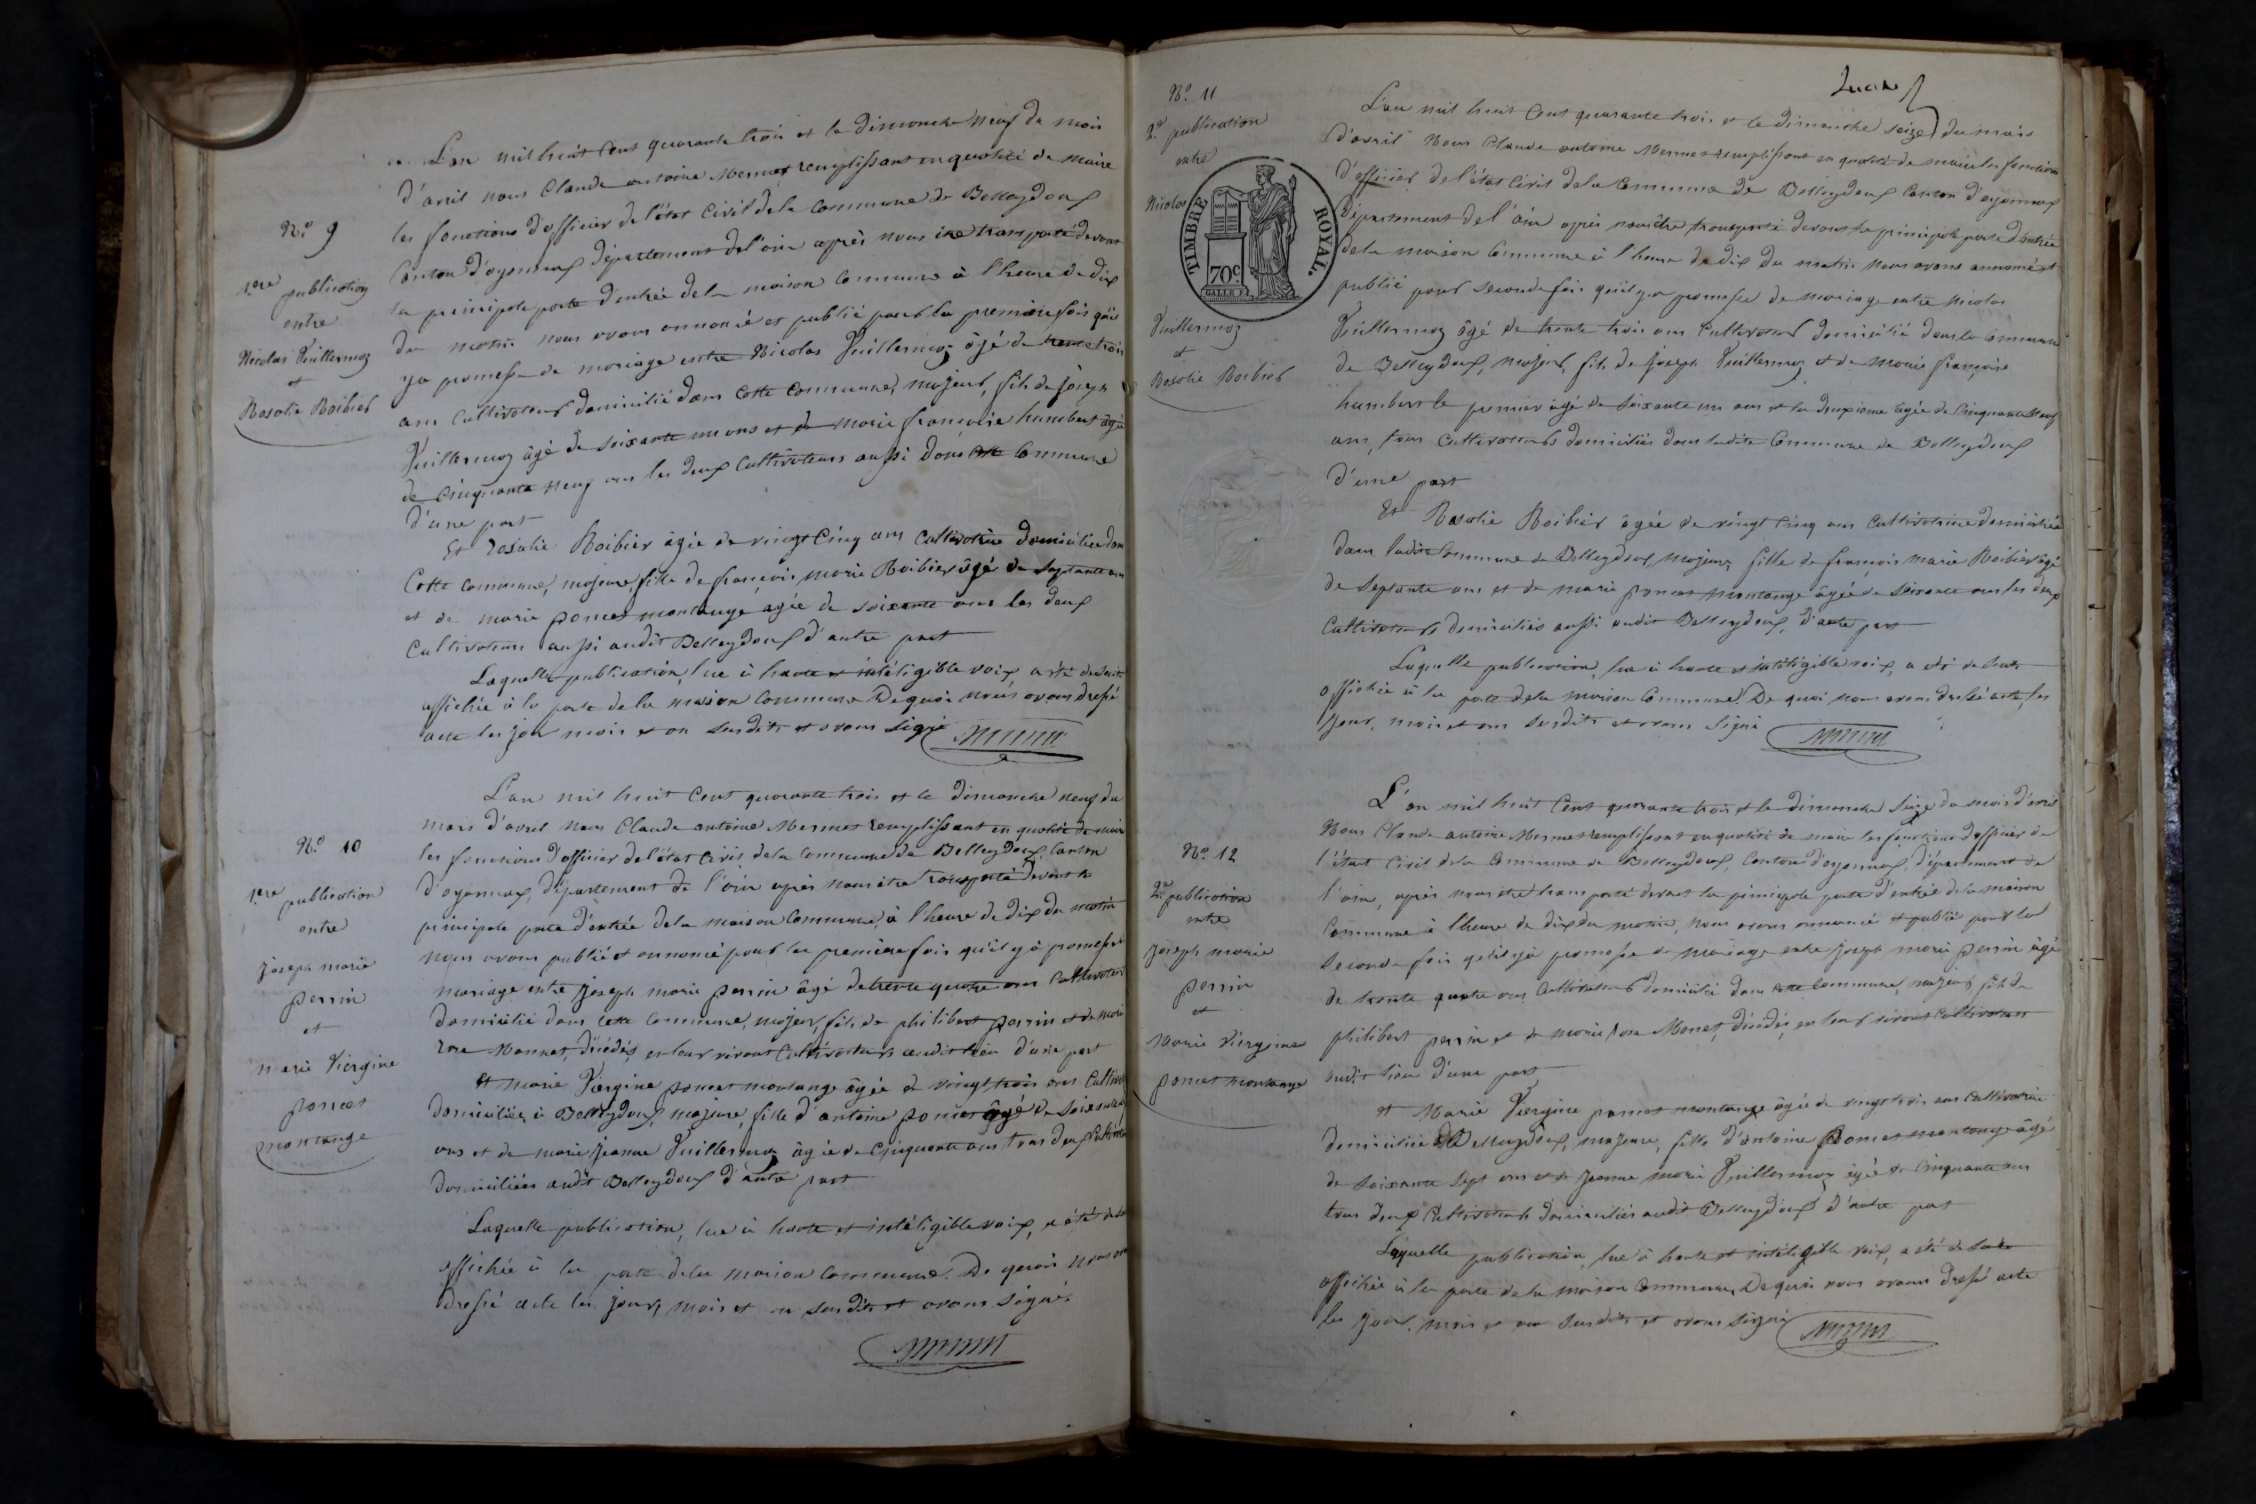 L'an mil huit Cent quarante trois et le dimanche neuf du mois
d'avril nous Claude antoine Mermet remplissant en qualité de maire
les fonctions d'officier de l'état Civil de la Commune de Belleydoux
Canton d'oyonnax département de l'ain après nous être transporté devant
la principale porte d'entrée de la maison Commune à l'heure de dix
du matin nous avons annoncé et publié pour la première fois qu'il
y a promesse de mariage entre Nicolas Vuillermoz âgé de trente trois
ans Cultivateur domicilié dans Cette Commune, majeur, fils de joseph
Vuillermoz âgé de soixante un ans et de marie françoise humbert âgée
de Cinquante neuf ans les deux Cultivateurs aussi dans cette Commune
d'une part
Et rosalie Boibier âgée de vingt Cinq ans Cultivatrice domiciliée dans
Cette Commune, majeure, fille de françois marie Boibier âgé de septante ans
et de marie poncet montange âgée de soixante ans les deux
Cultivateurs aussi audit Belleydoux d'autre part
Laquelle publication, lue à haute et intéligible voix a été de suite
affichée à la porte de la maison Commune De quoi nous avons dressé
acte les jour mois et an susdits et avons signé
Mermet
N.º 9
1.ere publication
entre
Nicolas Vuillermoz
et
Rosalie Boibier
L'an mil huit Cent quarante trois et le dimanche neuf du
mois d'avril nous Claude antoine Mermet remplissant en qualité de maire
les fonctions d'officier de l'état Civil de la Commune de Belleydoux Canton
d'oyonnax, département de l'ain après nous être transporté devant la
principale porte d'entrée de la maison Commune, à l'heure de dix du matin
nous avons publié et annoncé pour la première fois qu'il y a promesse de
mariage entre joseph marie perrin âgé de trente quatre ans Cultivateur
domicilié dans cette Commune, majeur, fils de philibert perrin et de marie
rose Monnet, décédés, en leur vivant Cultivateurs audit lieu d'une part
et marie Viergine poncet montange âgée de vingt trois ans Cultiv
domiciliée à Belleydoux, majeure, fille d'antoine poncet âgé de soixante
ans et de marie jeanne Vuillermoz âgée de Cinquante ans tous deux Cultivateurs
domiciliés audit Belleydoux d'autre part
Laquelle publication, lue à haute et intéligible voix, a été de
affichée à la porte de la maison Commune. De quoi nous avons
dressé acte les jour, mois et an susdits et avons signé
Mermet
N.º 10
1.ere publication
entre
joseph marie
perrin
et
marie Viergine
poncet
montange
L'an mil huit Cent quarante trois et le dimanche seize du mois
d'avril Nous Claude antoine Mermet remplissant en qualité de maire les fonctions
d'officier de l'état Civil de la Commune de Belleydoux Canton d'oyonnax
Département de l'ain après nous être transporté devant la principale porte d'entrée
de la maison Commune à l'heure de dix du matin nous avons annoncé et
publié pour seconde fois qu'il y a promesse de mariage entre nicolas
Vuillermoz âgé de trente trois ans Cultivateur domicilié dans la Commune
de Belleydoux, majeur, fils de joseph Vuillermoz et de marie françoise
humbert le premier âgé de soixante un ans et la deuxième âgée de Cinquante neuf
ans, tous Cultivateurs domiciliés dans ladite Commune de Belleydoux
d'une part
Et Rosalie Boibier âgée de vingt Cinq ans Cultivatrice domiciliée
dans ladite Commune de Belleydoux, majeure, fille de françois marie Boibier âgé
de Septante ans et de marie poncet montange âgée de soixante ans les deux
Cultivateurs domiciliés aussi audit Belleydoux, d'autre part
Laquelle publication, lue à haute et intéligible voix, a été de suite
affichée à la porte de la maison Commune. De quoi nous avons dressé acte, les
jour, mois et an susdits et avons signé
Mermet
N.º 11
2.e publication
entre
Nicolas
Vuillermoz
et
Rosalie Boibier
TIMBRE ROYAL.
70.c
GALLE F.
L'an mil huit Cent quarante trois et le dimanche seize du mois d'avril
Nous Claude antoine Mermet remplissant en qualité de maire les fonctions d'officier de
l'état Civil de la Commune de Belleydoux, Canton d'oyonnax, département de
l'ain, après nous être transporté devant la principale porte d'entrée de la maison
Commune à l'heure de dix du matin, nous avons annoncé et publié pour la
Seconde fois qu'il y a promesse de mariage entre joseph marie perrin âgé
de trente quatre ans Cultivateur domicilié dans cette Commune, majeur, fils de
philibert perrin et de marie rose Monnet, décédés, en leur vivant Cultivateurs
audit lieu d'une part
et Marie Viergine poncet montange âgée de vingt trois ans Cultivatrice
domiciliée à Belleydoux, majeure, fille d'antoine poncet montange âgé
de soixante sept ans et de jeanne marie Vuillermoz âgée de Cinquante ans
tous deux Cultivateurs domiciliés audit Belleydoux d'autre part
Laquelle publication, lue à haute et intéligible voix, a été de suite
affichée à la porte de la maison Commune, De quoi nous avons dressé acte
les jour, mois et an susdits et avons signé
Mermet
N.º 12
2.e publication
entre
joseph marie
perrin
et
Marie Viergine
poncet montange